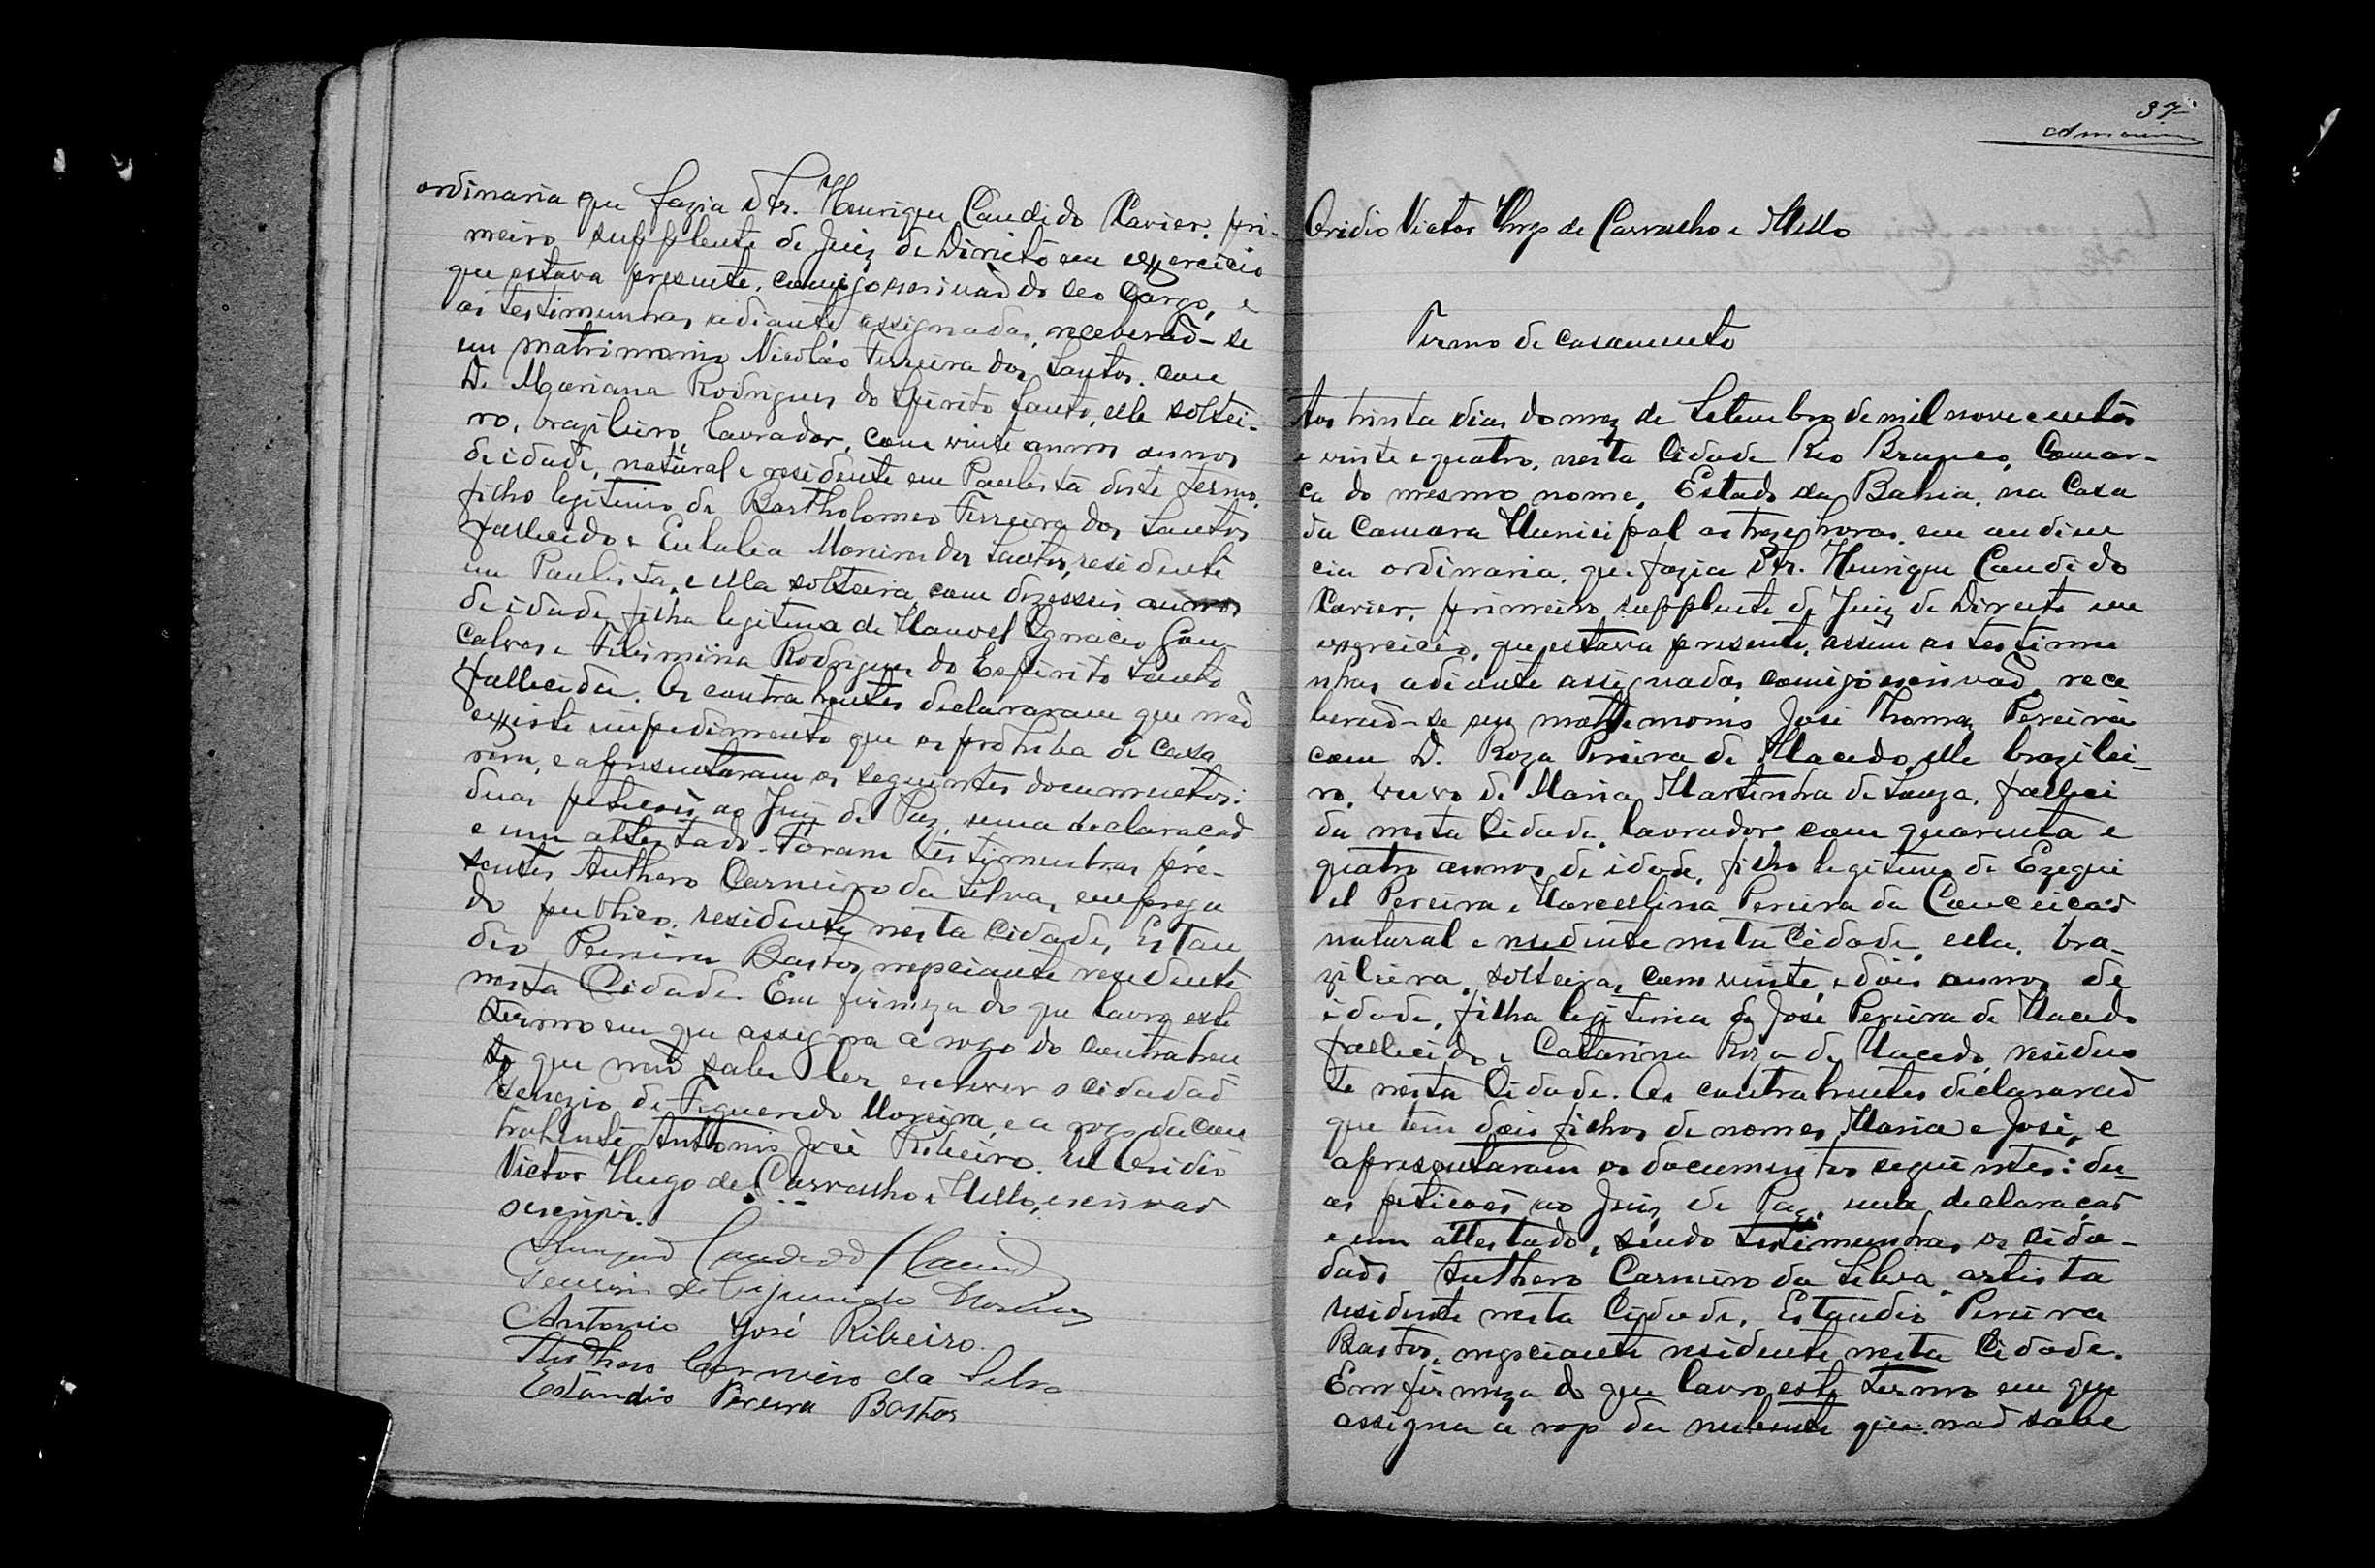 ordinaria que fazia o Sr. Henrique Candido Xavier, pri-
meiro supplente de Juiz de Direito em exercicio
que estava presente, comigo escrivaõ do seo cargo, e
as testimunhas adiante assignadas, receberaõ-se
em matrimonio Nicoláo Ferreira dos Santos, com
D. Mariana Rodrigues do Espirito Santo, elle soltei-
ro, brazileiro, lavrador, com vinte annos annos
de idade, natural e residente em Paulista deste termo,
filho legitimo de Bartholomeo Ferreira dos Santos
fallecido e Eulalia Moreira dos Santos, residente
em Paulista, e ella solteira com dezesseis annos
de idade, filha legitima de Manoel Ignacio Gon
calves e Filismina Rodrigues do Espirito Santo
fallecida. Os contrahentes declararam que naõ
existe impedimento que os prohiba de casa
rem, e apresentaram os seguintes documentos:
duas petições ao Juiz de Paz, uma declaração
e um attestado. Foram testimunhas pre-
sentes Anthero Carneiro da Silva, emprega
do publico, residente nesta Cidade, Estan
dio Pereira Bastos negociante residente
nesta Cidade. Em firmeza do que lavro este
termo em que assigna a rogo do contrahen
te que naõ sabe ler escrever o cidadaõ
de Figueredo Moreira, e a rogo da con
trahente Antonio José Ribeiro. Eu Ovidio
Victor Hugo de Carvalho e Mello, escrivaõ
o escrevi.
Henrique Candido Xavier
de Figueredo Moreira
Antonio José Ribeiro.
Anthero Carneiro da Silva
Estândio Pereira Bastos
37
Amorim
Ovidio Victor Hugo de Carvalho e Mello
Termo de casamento
Aos trinta dias do mez de Setembro de mil novecentos
e vinte e quatro, nesta Cidade Rio Branco, Comar-
ca do mesmo nome, Estado da Bahia, na Casa
da Camara Municipal as treze horas, em audien
cia ordinaria, que fazia o Sr. Henrique Candido
Xavier, primeiro supplente de Juiz de Direito em
exercicio, que estava presente, assim as testimu
nhas adiante assignadas comigo escrivaõ, rece
beraõ-se em mattrimonio José Thomaz Pereira
com D. Roza Pereira de Macedo, elle brazilei-
ro, viuvo de Maria Martinha de Souza, falleci
da nesta Cidade, lavrador com quarenta e
quatro annos de idade, filho legitimo de Ezequi
el Pereira e Marcellina Pereira da Conceicaõ
natural e residente nesta Cidade, ella, bra-
zileira, solteira, com vinte e dois annos de
idade, filha legitima de José Pereira de Macedo
fallecido e Catarina Roza de Macedo, residen
te nesta Cidade. Os contrahentes declararaõ
que tem dois filhos de nomes, Maria e José, e
apresentaram os documentos seguintes: du-
as petições ao Juiz de Paz, uma declaraçaõ
e um attestado, sendo testimunhas os cida-
daõs Anthero Carneiro da Silva, artista
residente nesta Cidade, Estandio Pereira
Bastos, negociante residente nesta Cidade.
Em firmeza do que lavro este termo em que
assigna a rogo da nubente que naõ sabe